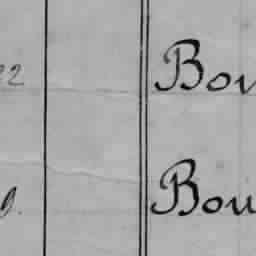 22 Bou
9. Bou